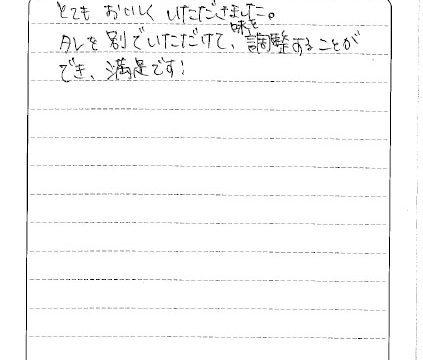 とても おいしく いただきました。
タレを別でいただけて、味を調整することが
でき、満足です!